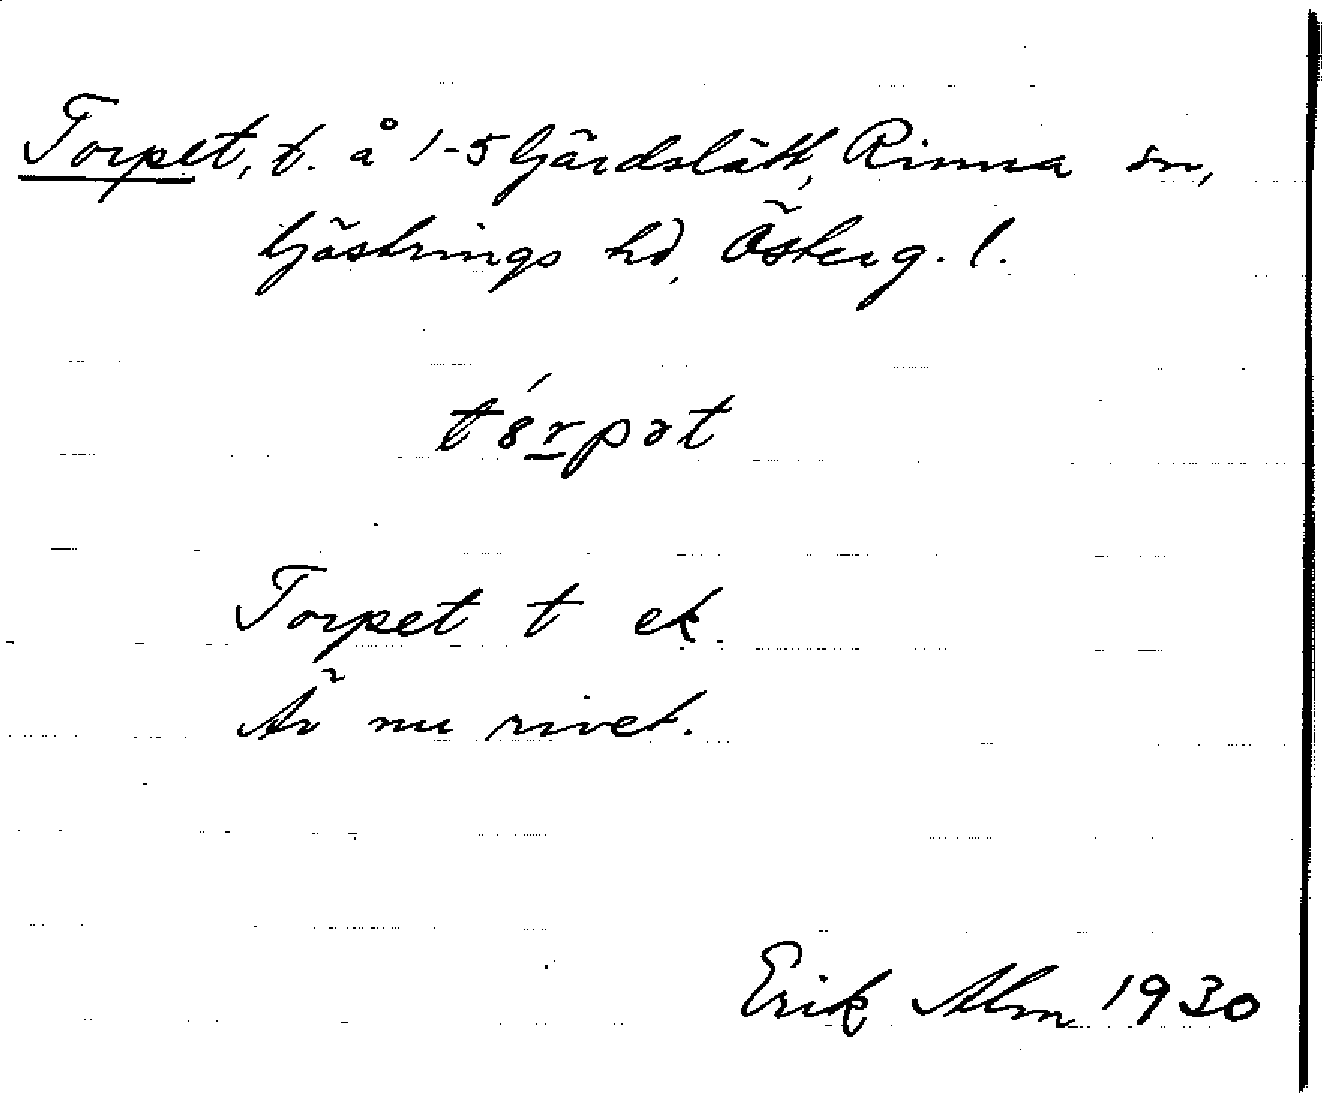 Torpet, t. å 1-5 Gärdslätt, Rinna sn,
Göstrings hd, Österg. l.
tó̤rpət
Torpet t ek.
Är nu rivet.
Erik Alm 1930